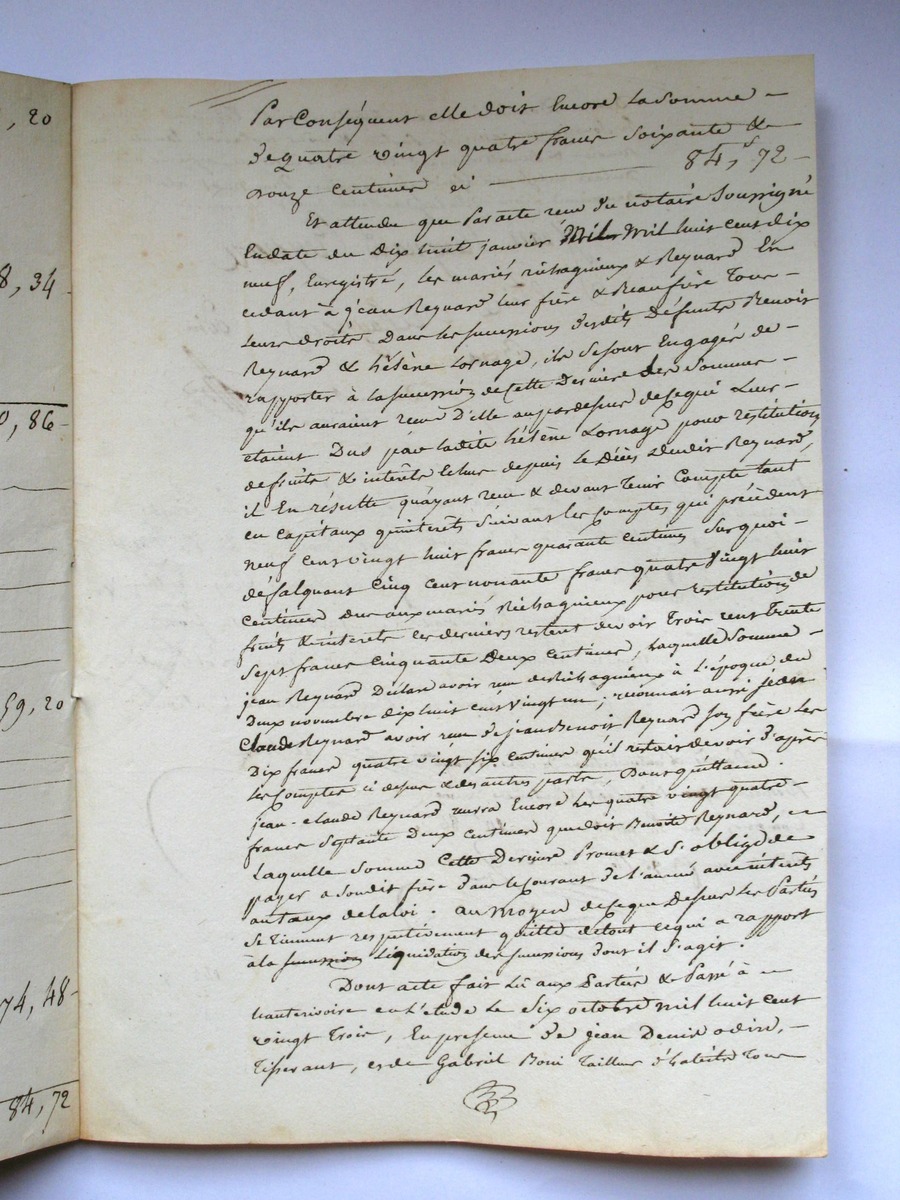 , 20
8, 34
0, 86
59, 20
74, 48
84, 72
Par Conséquent elle doit Encore La Somme
de quatre vingt quatre francs Soixante &
Douze Centimes ci 84, 72
Et attendu que Par acte reçu du notaire Soussigné
En date du Dix huit janvier Mil huit cent dix
neuf, Enregistré, les mariés & Reynard En
cedant à jean Reynard leur frère & Beau frère Tous
Leurs droits Dans les successions desdits Défunts Benoit
Reynard & hélène Lornage, ils se sont Engagés de
rapporter à la succession de cette Dernière Les Sommes
qu'ils auraient reçu D'elle au pardessus de ce qui Leur
etaient Dus par ladite hélène Lornage pour restitution
de fruits & intérêts Echus depuis le Décès dudit Reynard,
il En résulte qu'ayant reçu & devant Tenir Compte tant
en capitaux qu'intérêts Suivant les Comptes qui précèdent
neuf cent vingt huit francs quarante centimes Sur quoi
défalquant Cinq cent nonante francs quatre Vingt huit
Centimes Dus aux mariés pour restitution de
fruits & intérêts ces derniers restent devoir Trois cent Trente
Sept francs Cinquante Deux Centimes, Laquelle Somme
jean Reynard Déclare avoir reçu à L'époque du
Deux novembre dix huit cent vingt un; reconnait aussi Jean
Claude Reynard avoir reçu de jean Benoit Reynard Son frère Les
Dix francs quatre vingt Six Centimes qu'il restait devoir D'après
Les Comptes ci dessus & des autres parts, Dont quittance.
jean-claude Reynard aura Encore Les quatre vingt quatre
francs Septante Deux Centimes que doit Benoite Reynard,
Laquelle Somme Cette Dernière Promet & S'oblige de
payer a Son dit frère Dans le Courant de l'année avec intérêts
au taux de la loi. au Moyen de ce que Dessus Les Parties
Se Tiennent respectivement quitte de tout ce qui a rapport
à la succession Liquidation des successions Dont il S'agit.
Dont acte fait Lû aux Parties & Passé à
hauterivoire en l'étude Le Six octobre mil huit cent
vingt Trois, En presence de jean Denis odin,
Tisserant, et de Gabriel Boni Tailleur d'habits Tous